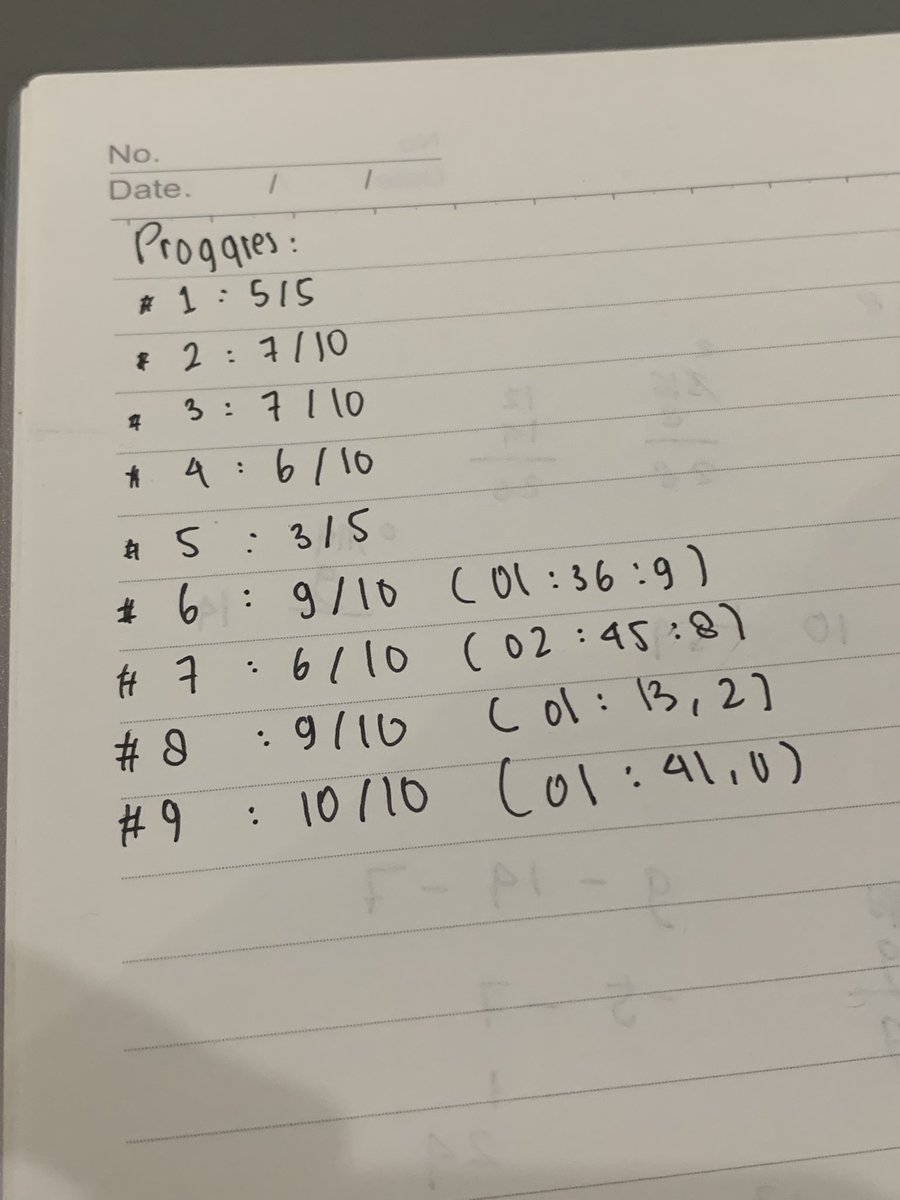 No.
Date. / /
Proggres:
# 1 : 5/5
# 2 : 7/10
# 3 : 7/10
# 4 : 6/10
# 5 : 3/5
# 6 : 9/10 (01:36:9)
# 7 : 6/10 (02:45:8)
# 8 : 9/10 (01:13,2)
# 9 : 10/10 (01:41,0)